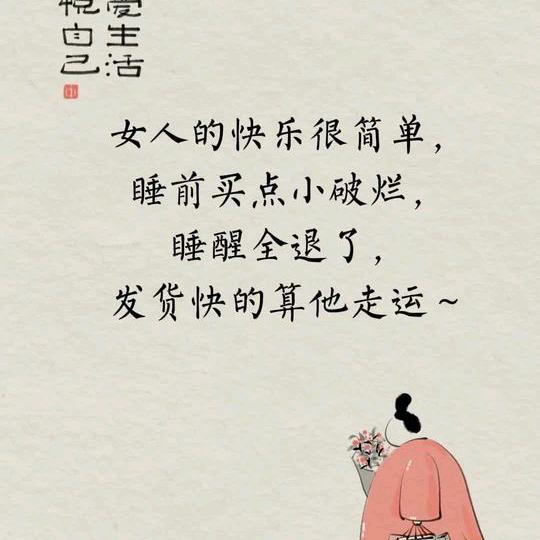 爱生活
悦自己
女人的快乐很简单，
睡前买点小破烂，
睡醒全退了，
发货快的算他走运～